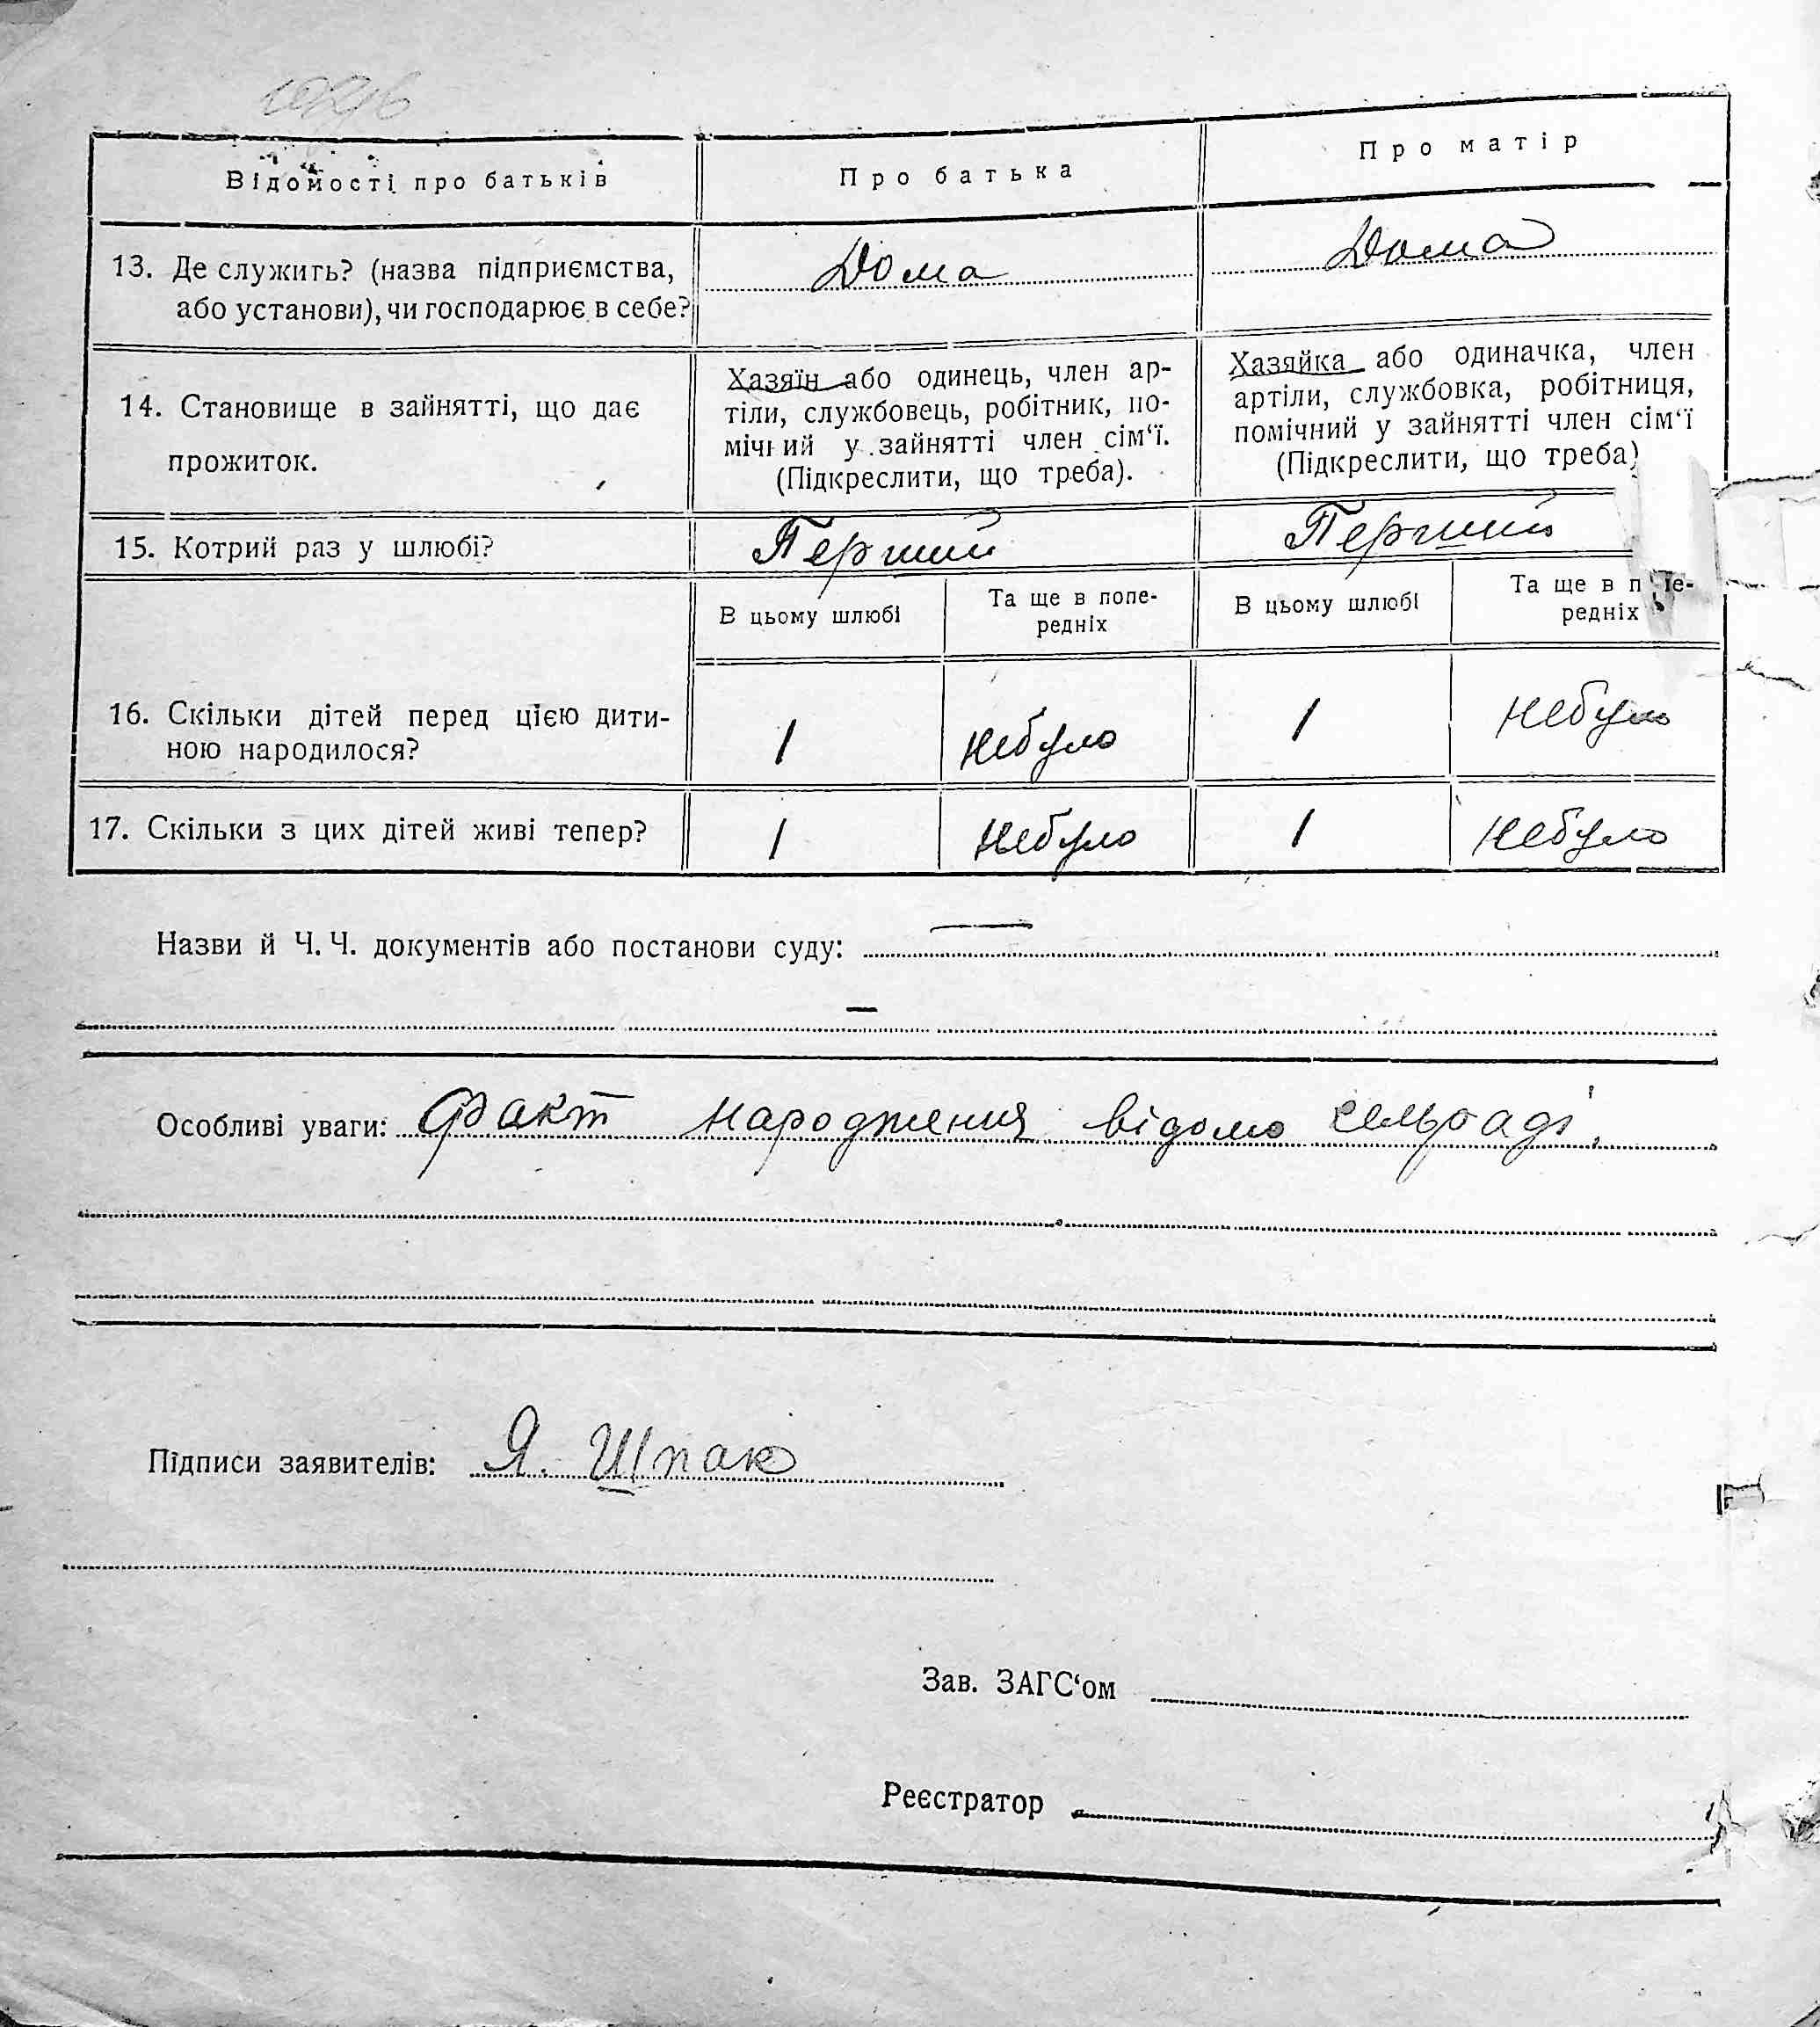 Відомості про батьків
Про батька
Про матір
13. Де служить? (назва підприємства,
або установи), чи господарює в себе?
Дома
Дома
14. Становище в зайнятті, що дає
прожиток.
Хазяїн або одинець, член ар-
тіли, службовець, робітник, по-
мічний у зайнятті член сім‘ї.
(Підкреслити, що треба).
Хазяйка або одиначка, член
артіли, службовка, робітниця,
помічний у зайнятті член сім‘ї
(Підкреслити, що треба)
15. Котрий раз у шлюбі?
Перший
Перший
В цьому шлюбі
Та ще в попе-
редніх
В цьому шлюбі
Та ще в попе-
редніх
16. Скільки дітей перед цією дити-
ною народилося?
1
небуло
1
небуло
17. Скільки з цих дітей живі тепер?
1
небуло
1
небуло
Назви й Ч. Ч. документів або постанови суду: —
—
Особливі уваги: Факт народження відомо сельраді.
Підписи заявителів: Я. Шпак
Зав. ЗАГС‘ом
Реєстратор